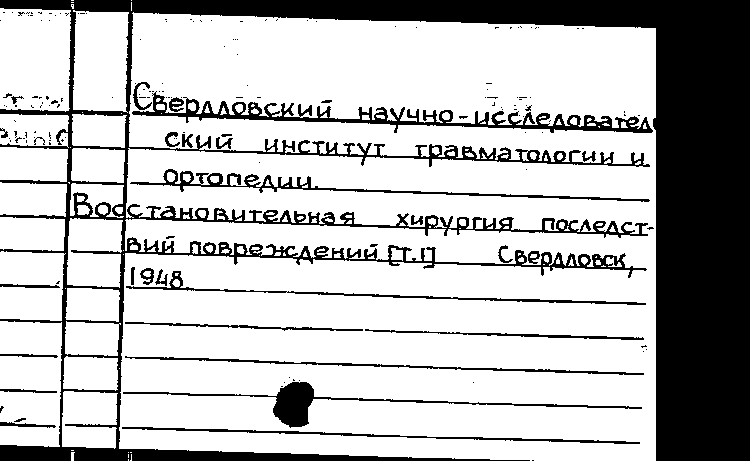 Свердловский научно-исследователь
ский институт травматологии и
ортопедии.
Восстановительная хирургия последст-
вий повреждений [Т.1] Свердловск,
1948